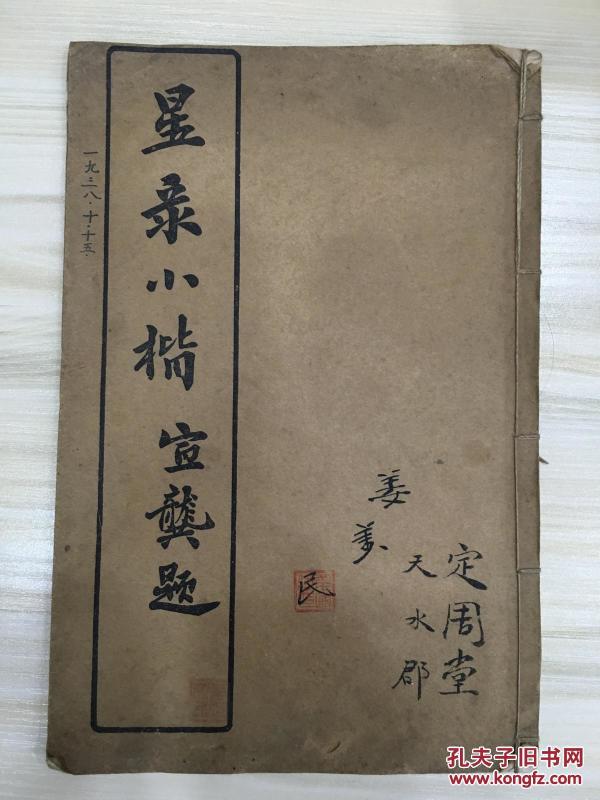 星录小楷 宣龚题
一九三八·十·十五·
定周堂
天水郡
姜
美
民
孔夫子旧书网
www.kongfz.com